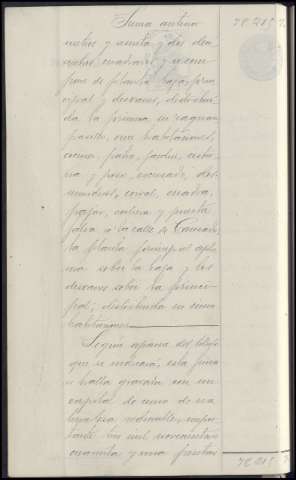 Suma anterior 78.215
metros y setenta y dos de-
címetros cuadrados y se com-
pone de planta baja, prin-
cipal y desvanes, distribuí-
da la primera en zaguan
pasillo, once habitaciones,
cocina, patio, jardín, cister-
na y pozo, escusado, des-
corral, cuadra,
pajar, y puerta
falsa á la calle de
la planta principal
sobre la baja y los
desvanes sobre la princi-
pal; distribuida en cinco
habitaciones
Según aparece del título
que se indicará, esta finca
se halla gravada con un
capital de censo de na-
turaleza redimible, impor-
tante tres mil novecientas
cincuenta y una pesetas
78.215